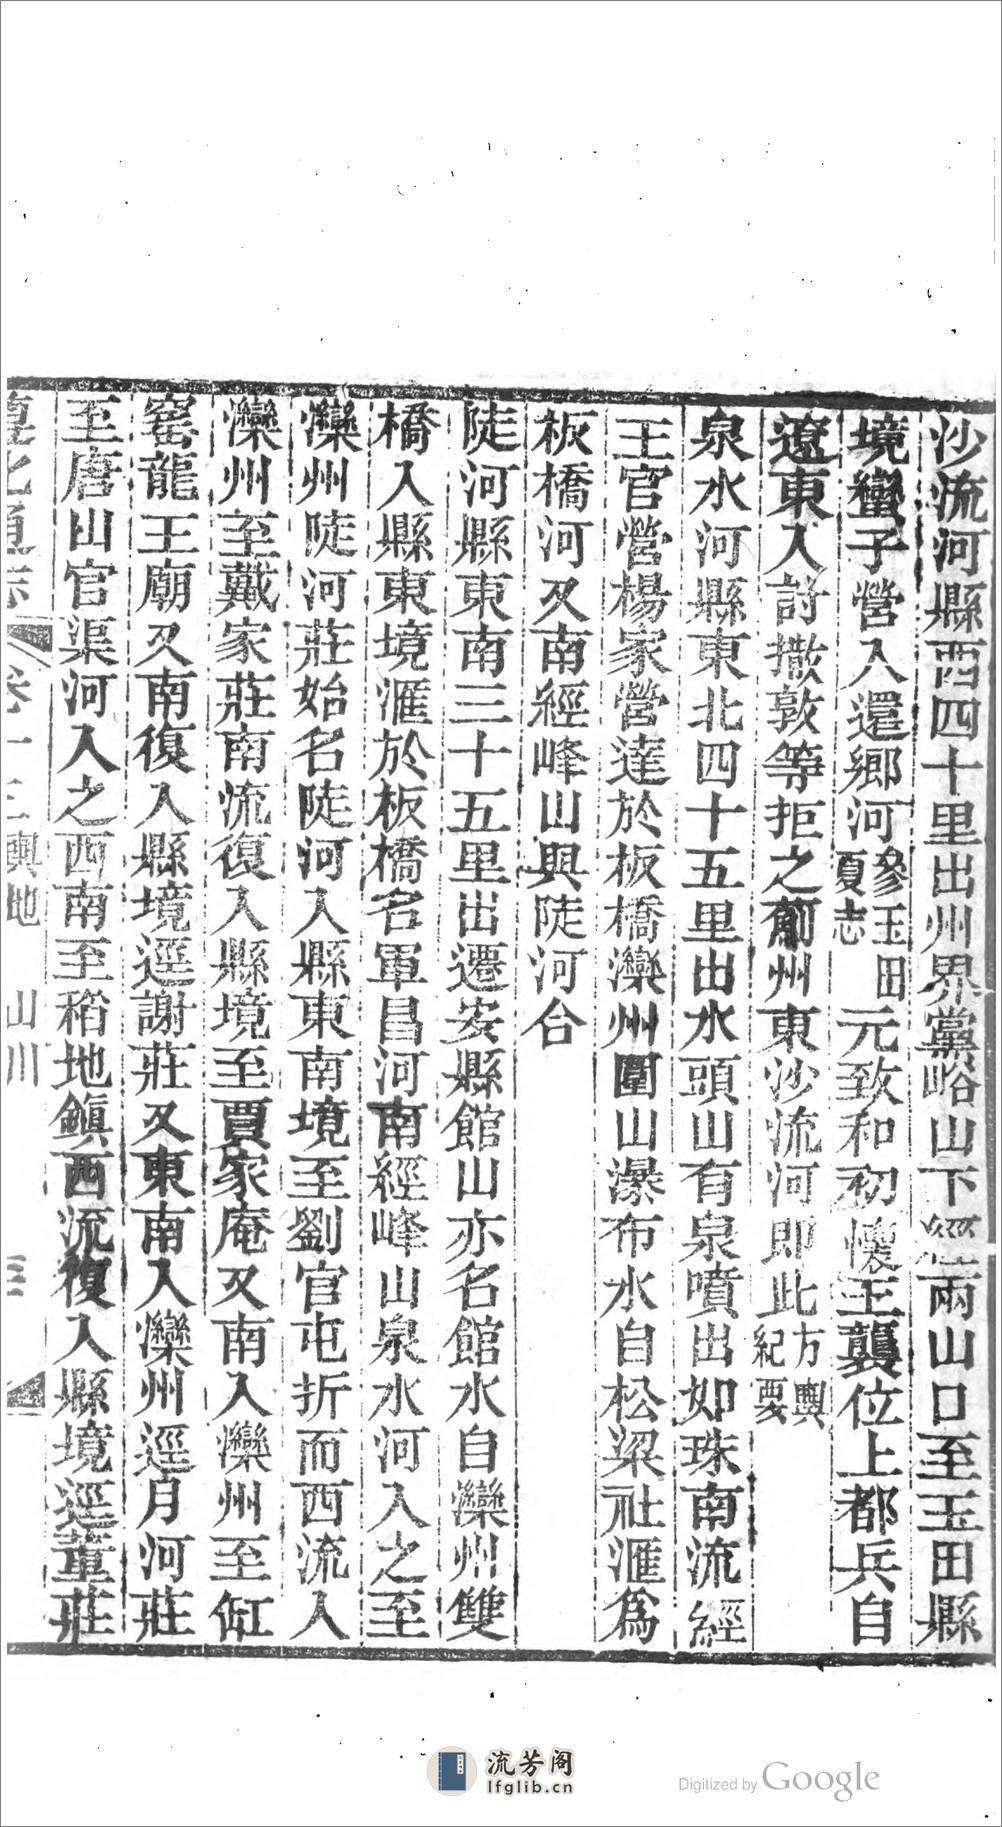 沙流河縣西四十里出州界黨峪山下經兩山口至玉田縣
境蠻子營入還鄉河參玉田夏志元致和初懷王襲位上都兵自
遼東入討撒敦等拒之薊州東沙流河即此方輿紀要
泉水河縣東北四十五里出水頭山有泉噴出如珠南流經
王官營楊家營達於板橋灤州圍山瀑布水自松梁社滙爲
板橋河又南經峰山與陡河合
陡河縣東南三十五里出遷安縣館山亦名館水自灤州雙
橋入縣東境滙於板橋名軍昌河南經峰山泉水河入之至
灤州陡河莊始名陡河入縣東南境至劉官屯折而西流入
灤州至戴家莊南流復入縣境至賈家庵又南入灤州至缸
窰龍王廟又南復入縣境逕謝莊又東南入灤州逕月河莊
至唐山官渠河入之西南至稻地鎮西流復入縣境逕董莊
遵化通志 卷十三 輿地 山川 三
流芳阁
lfglib.cn
Digitized by Google